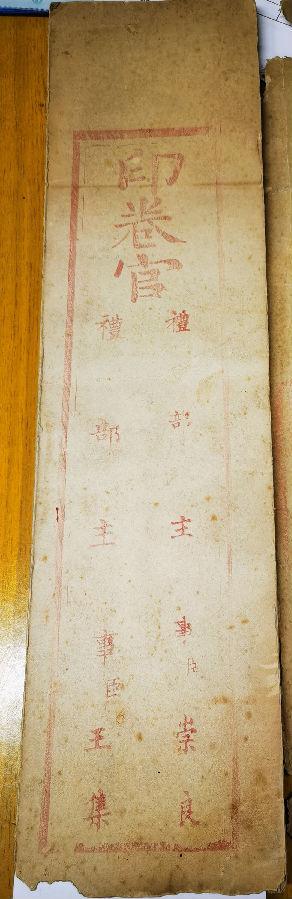 印卷官
禮部主事臣崇良
禮部主事臣王集